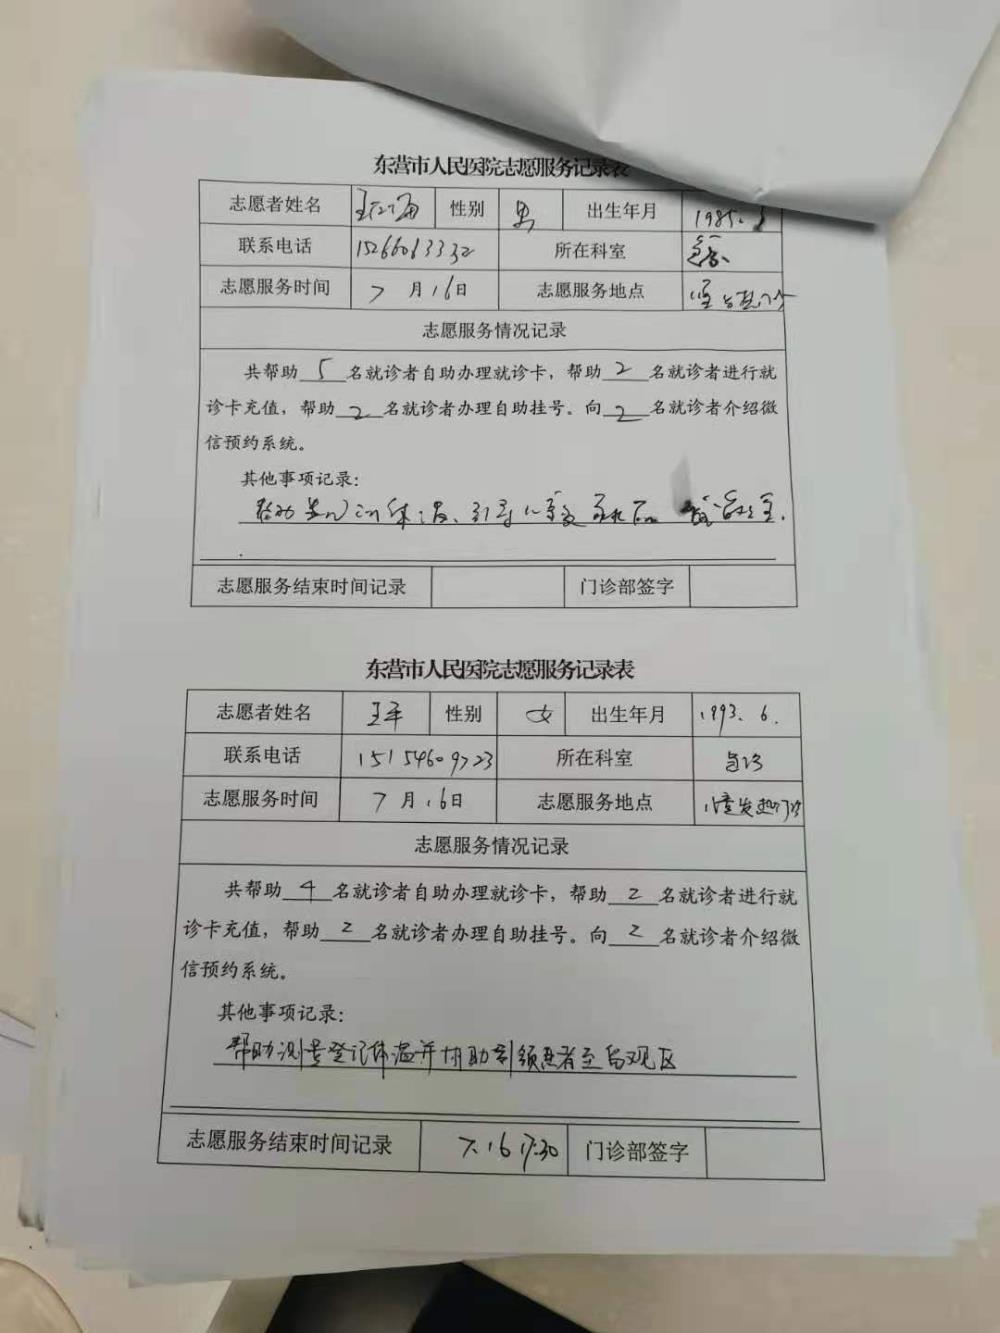 东营市人民医院志愿服务记录表
志愿者姓名 性别 男 出生年月 1985.
联系电话 15266063332 所在科室
志愿服务时间 7月16日 志愿服务地点
志愿服务情况记录
共帮助 5 名就诊者自助办理就诊卡，帮助 2 名就诊者进行就
诊卡充值，帮助 2 名就诊者办理自助挂号。向 2 名就诊者介绍微
信预约系统。
其他事项记录：
志愿服务结束时间记录 门诊部签字
东营市人民医院志愿服务记录表
志愿者姓名 王平 性别 女 出生年月 1993.6.
联系电话 15154609723 所在科室
志愿服务时间 7月16日 志愿服务地点 儿童发热门诊
志愿服务情况记录
共帮助 4 名就诊者自助办理就诊卡，帮助 2 名就诊者进行就
诊卡充值，帮助 2 名就诊者办理自助挂号。向 2 名就诊者介绍微
信预约系统。
其他事项记录：
帮助测量登记体温并协助引领患者至留观区
志愿服务结束时间记录 7.16 17:30 门诊部签字